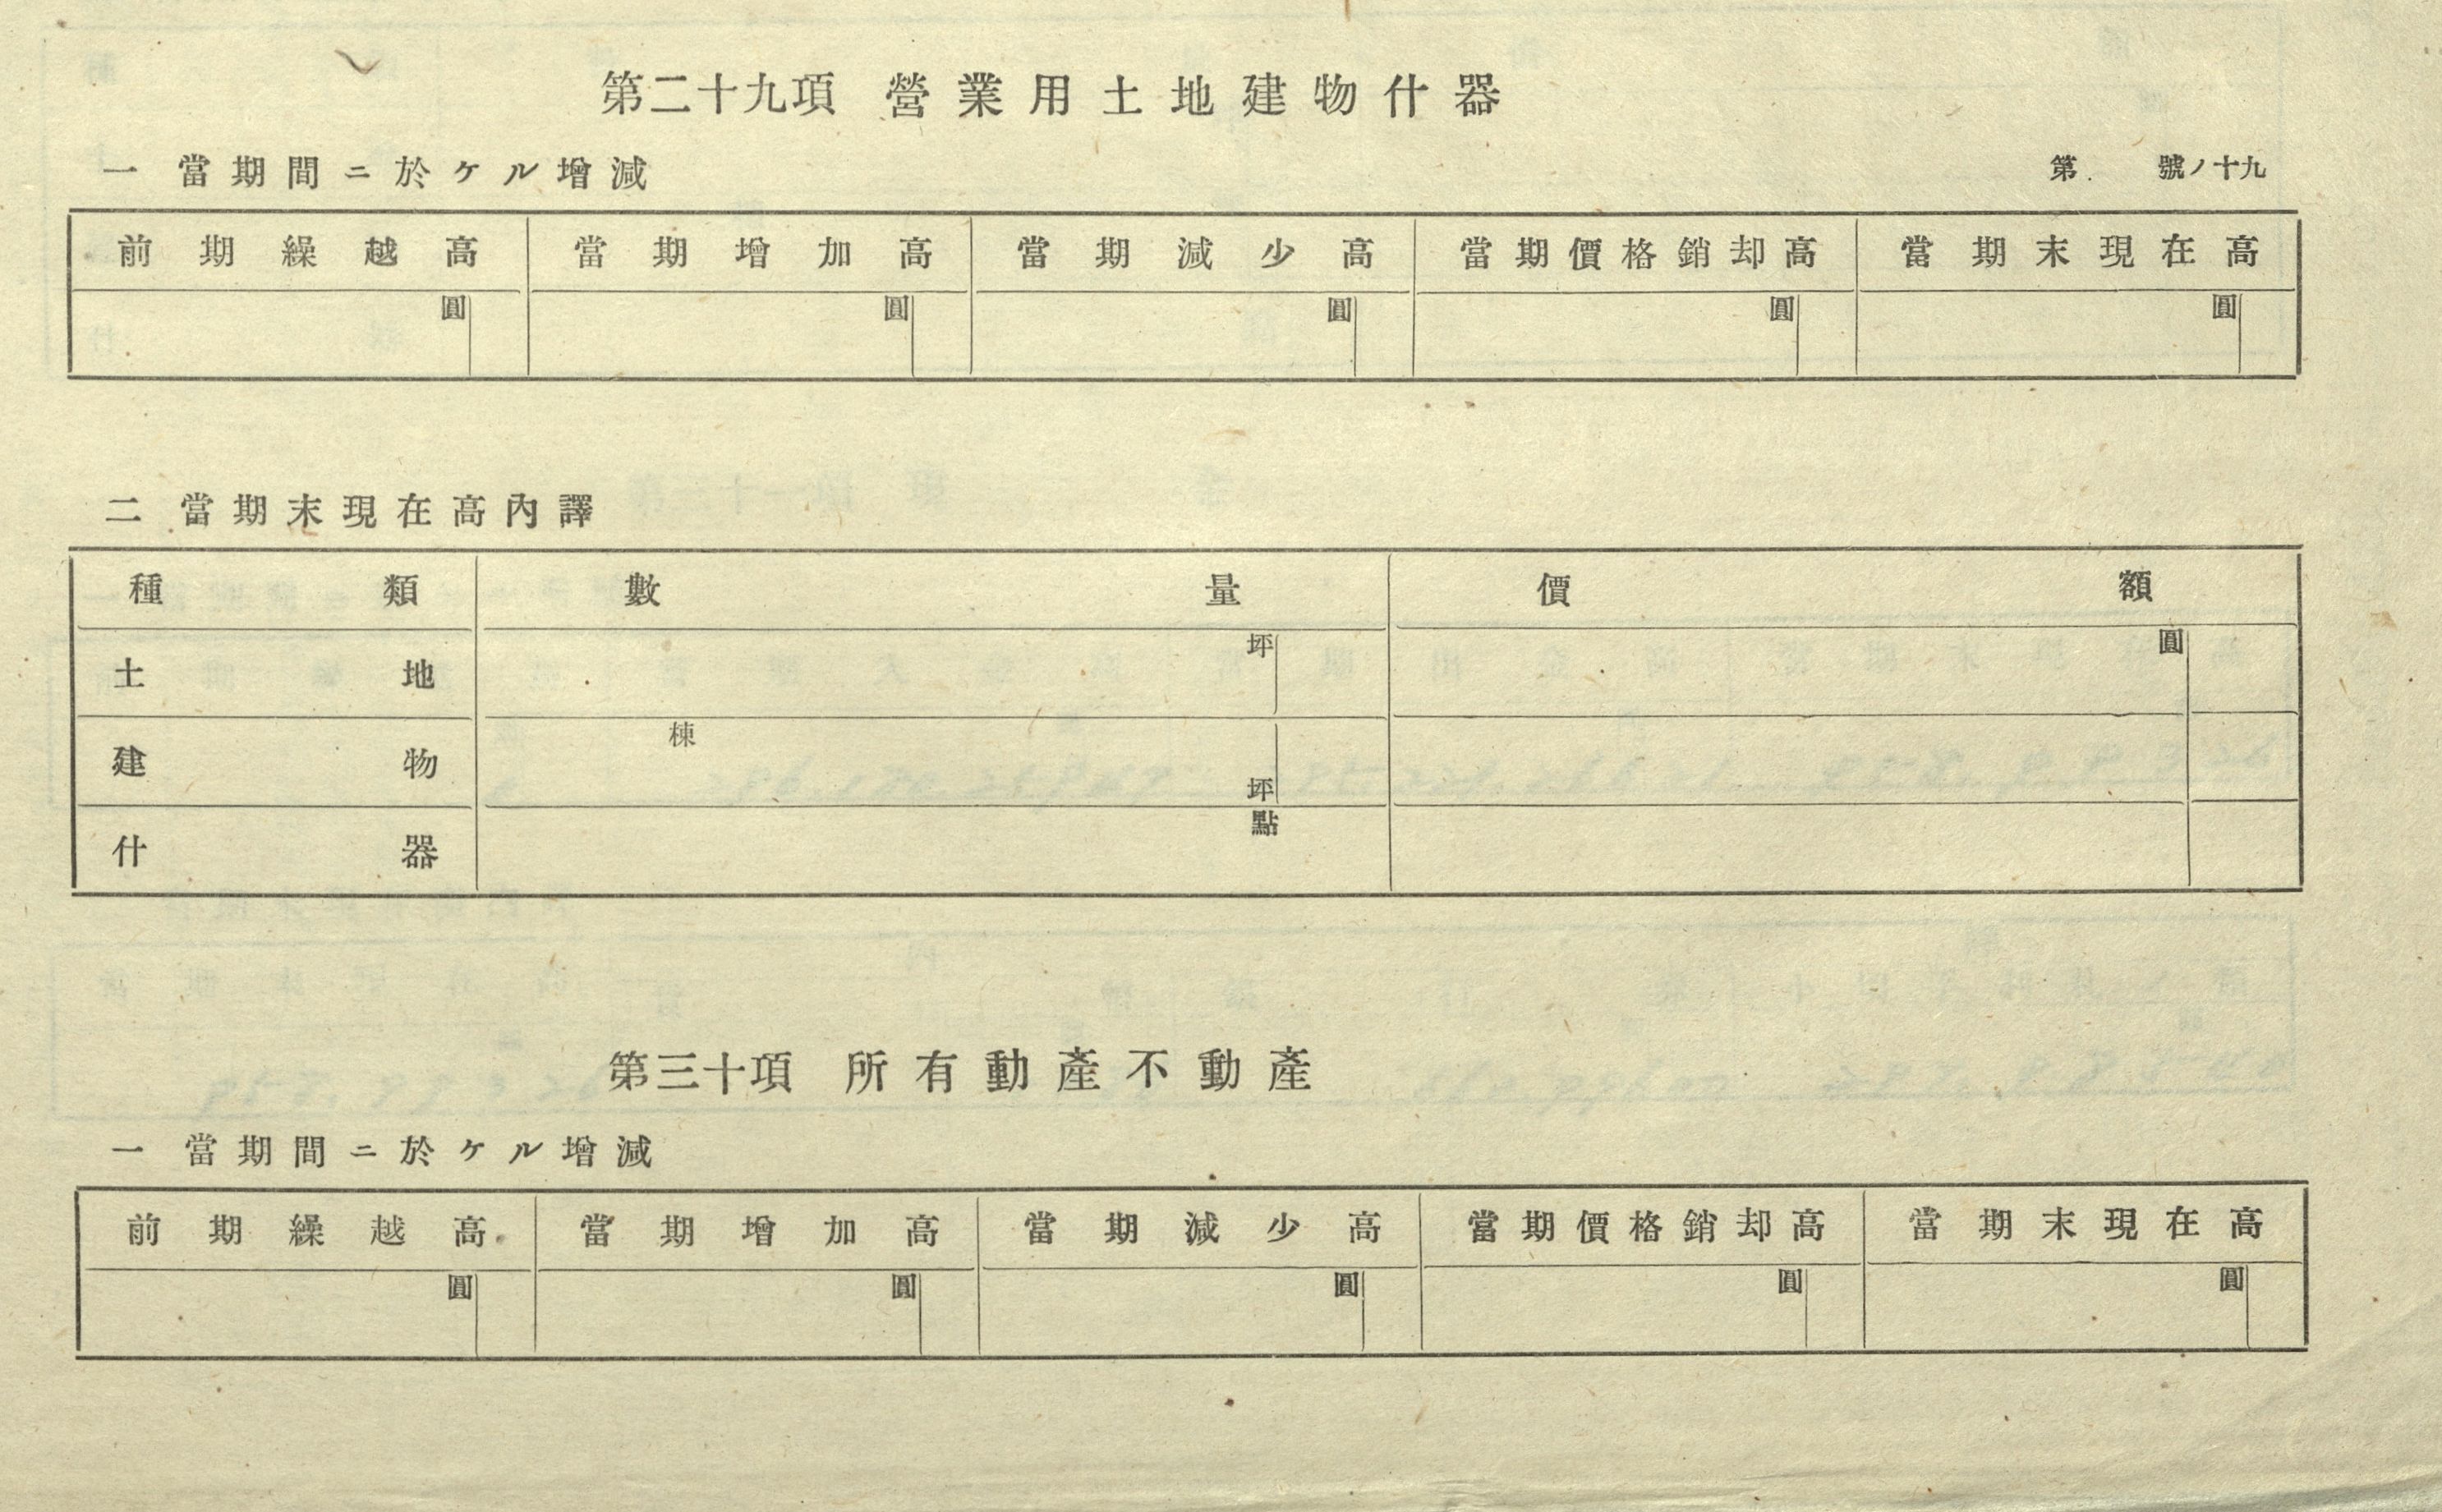 第二十九項 營業用土地建物什器
一 當期間ニ於ケル增減
第 號ノ十九
前期繰越高 當期增加高 當期減少高 當期價格銷却高 當期末現在高
圓 圓 圓 圓 圓
二 當期末現在高內譯
種類 數量 價額
土地 坪 圓
建物 棟 坪
什器 點
第三十項 所有動產不動產
一 當期間ニ於ケル增減
前期繰越高 當期增加高 當期減少高 當期價格銷却高 當期末現在高
圓 圓 圓 圓 圓